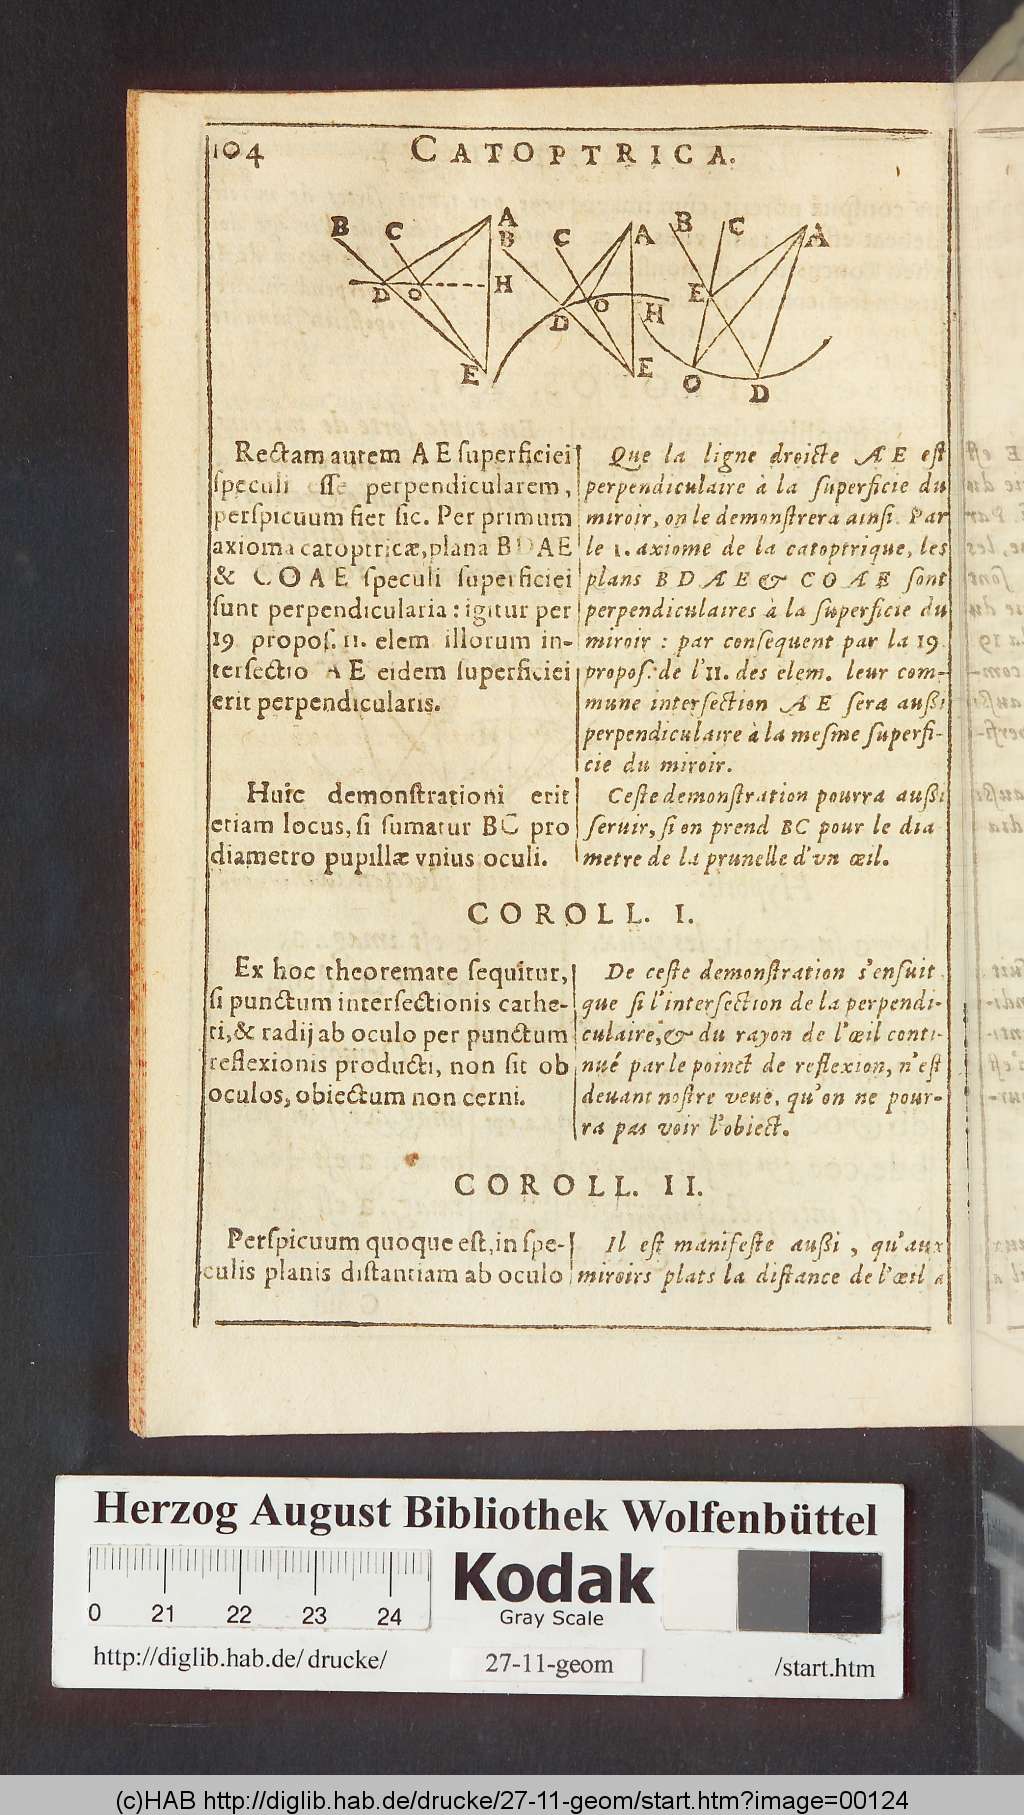 104
CATOPTRICA.
B C A
D O H
E
B C A
D O H
E
B C A
E
O D
Rectam autem A E superficiei
speculi esse perpendicularem,
perspicuum fiet sic. Per primum
axioma catoptricæ, plana B D A E
& C O A E speculi superficiei
sunt perpendicularia: igitur per
19 propos. 11. elem. illorum in-
tersectio A E eidem superficiei
erit perpendicularis.
Huic demonstrationi erit
etiam locus, si sumatur BC pro
diametro pupillæ vnius oculi.
Que la ligne droicte A E est
perpendiculaire à la superficie du
miroir, on le demonstrera ainsi. Par
le 1. axiome de la catoptrique, les
plans B D A E & C O A E sont
perpendiculaires à la superficie du
miroir : par consequent par la 19.
propos. de l'11. des elem. leur com-
mune intersection A E sera aussi
perpendiculaire à la mesme superfi-
cie du miroir.
Ceste demonstration pourra aussi
seruir, si on prend BC pour le dia
metre de la prunelle d'vn œil.
COROLL. I.
Ex hoc theoremate sequitur,
si punctum intersectionis cathe-
ti, & radij ab oculo per punctum
reflexionis producti, non sit ob
oculos, obiectum non cerni.
De ceste demonstration s'ensuit
que si l'intersection de la perpendi-
culaire, & du rayon de l'œil conti-
nué par le poinct de reflexion, n'est
deuant nostre veue, qu'on ne pour-
ra pas voir l'obiect.
COROLL. II.
Perspicuum quoque est, in spe-
culis planis distantiam ab oculo
Il est manifeste aussi, qu'aux
miroirs plats la distance de l'œil a
Herzog August Bibliothek Wolfenbüttel
0 21 22 23 24
Kodak
Gray Scale
http://diglib.hab.de/drucke/
27-11-geom
/start.htm
(c)HAB http://diglib.hab.de/drucke/27-11-geom/start.htm?image=00124